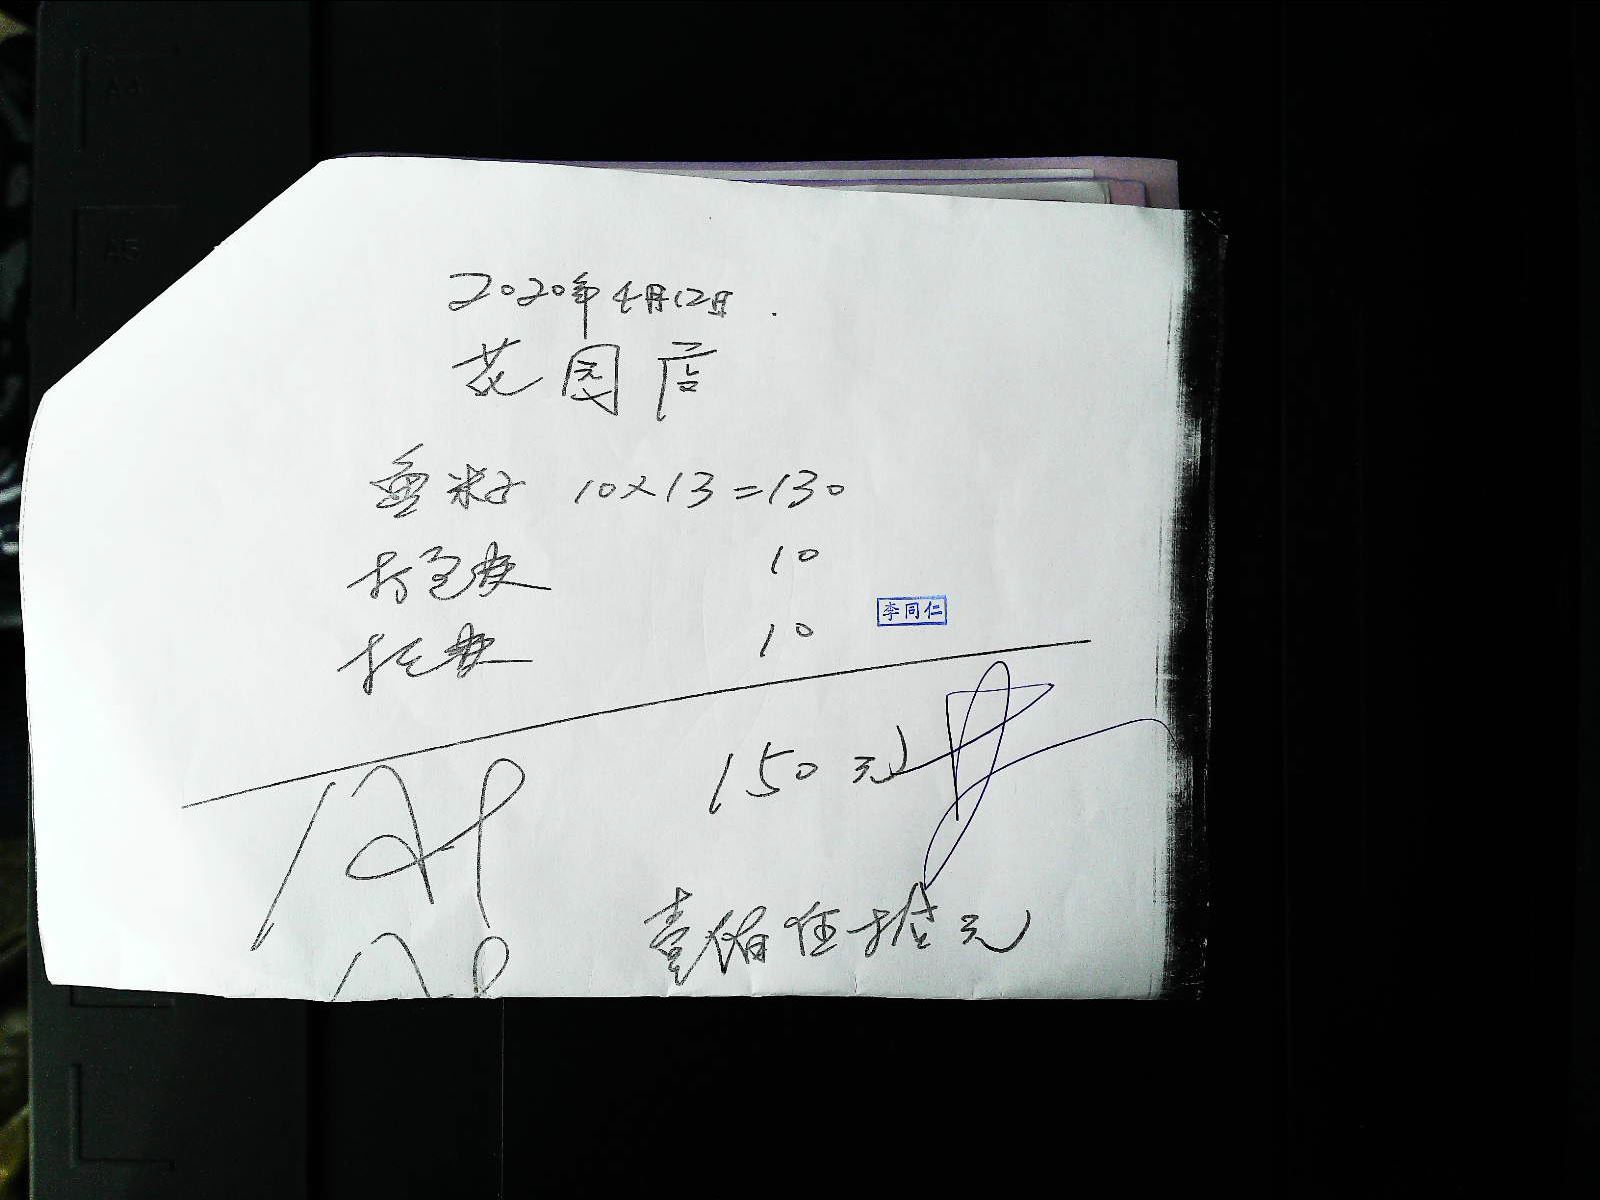 2020年4月12日.
花园店
鱼籽 10×13=130
打包费 10
托运费 10
李同仁
150元
壹佰伍拾元